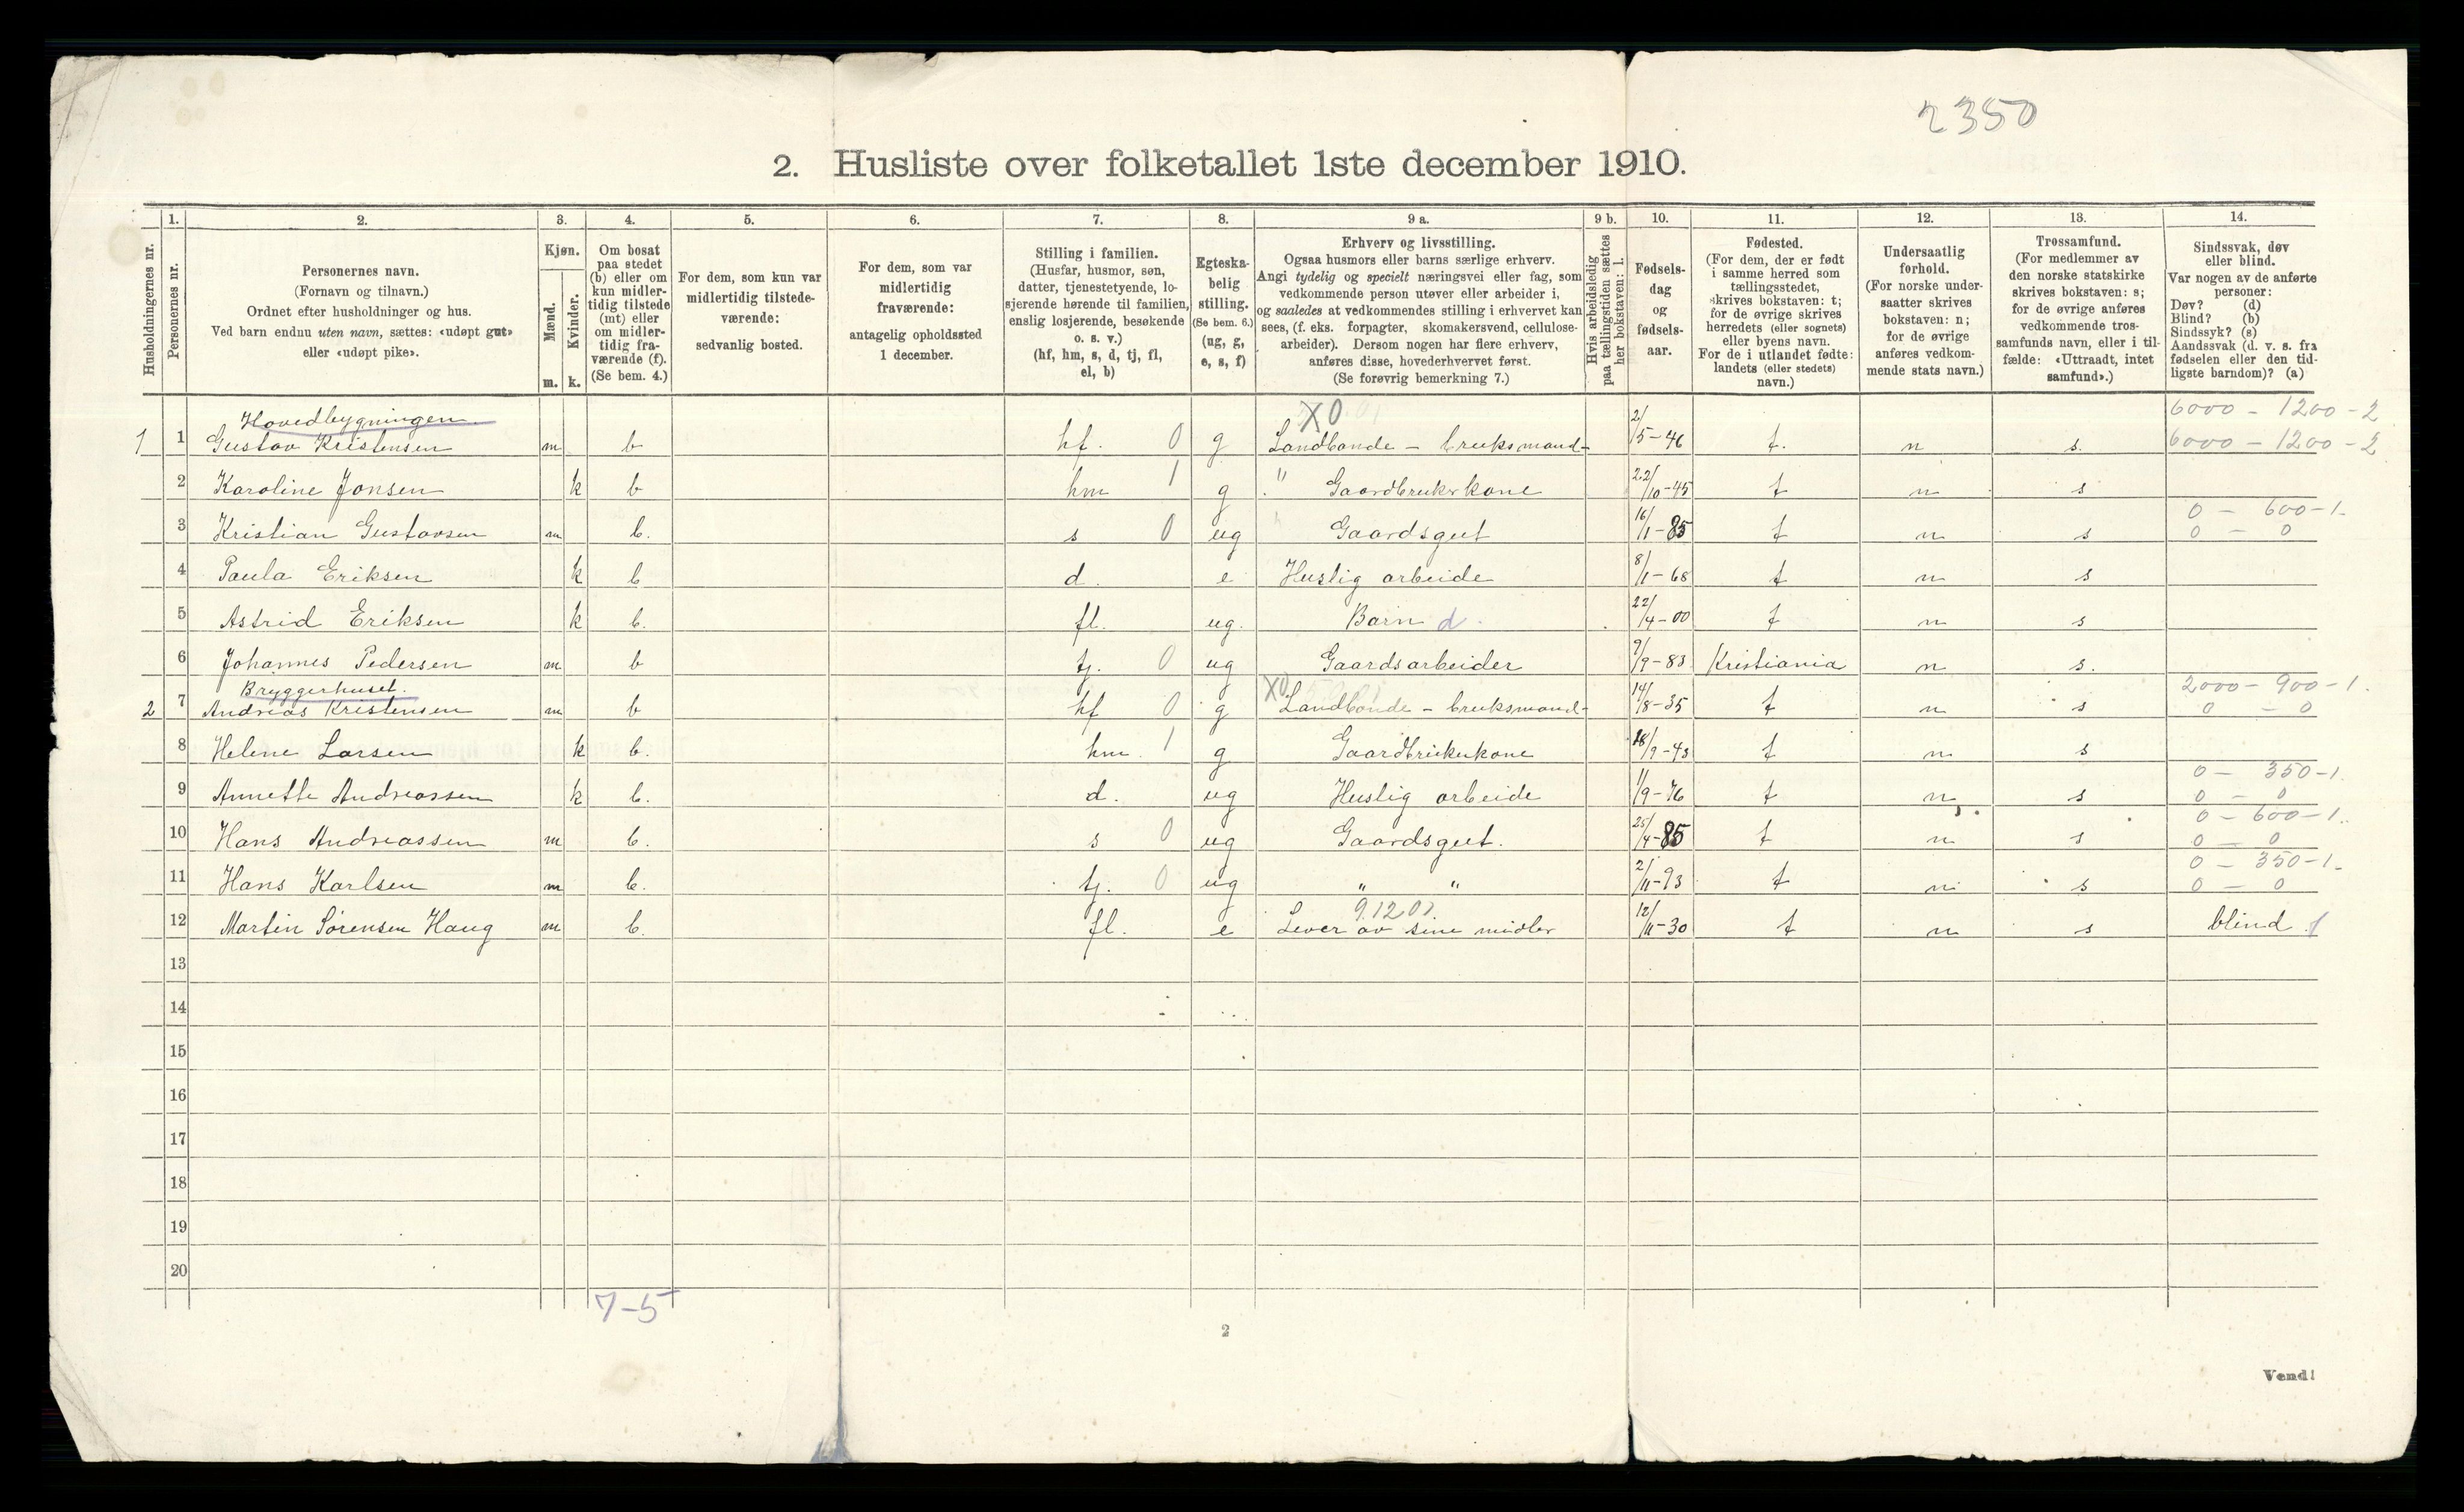 2350
2. Husliste over folketallet 1ste december 1910.
Husholdningernes nr.
1.
Personernes nr.
2.
Personernes navn.
(Fornavn og tilnavn.)
Ordnet efter husholdninger og hus.
Ved barn endnu uten navn, sættes: «udøpt gut»
eller «udøpt pike».
3.
Kjøn.
Mænd.
m.
Kvinder.
k.
4.
Om bosat
paa stedet
(b) eller om
kun midler-
tidig tilstede
(mt) eller
om midler-
tidig fra-
værende (f).
(Se bem. 4.)
5.
For dem, som kun var
midlertidig tilstede-
værende:
sedvanlig bosted.
6.
For dem, som var
midlertidig
fraværende:
antagelig opholdssted
1 december.
7.
Stilling i familien.
(Husfar, husmor, søn,
datter, tjenestetyende, lo-
sjerende hørende til familien,
enslig losjerende, besøkende
o. s. v.)
(hf, hm, s, d, tj, fl,
el, b)
8.
Egteska-
belig
stilling.
(Se bem. 6.)
(ug, g,
e, s, f)
9 a.
Erhverv og livsstilling.
Ogsaa husmors eller barns særlige erhverv.
Angi tydelig og specielt næringsvei eller fag, som
vedkommende person utøver eller arbeider i,
og saaledes at vedkommendes stilling i erhvervet kan
sees, (f. eks. forpagter, skomakersvend, cellulose-
arbeider). Dersom nogen har flere erhverv,
anføres disse, hovederhvervet først.
(Se forøvrig bemerkning 7.)
9 b.
Hvis arbeidsledig
paa tællingstiden sættes
her bokstaven: l.
10.
Fødsels-
dag
og
fødsels-
aar.
11.
Fødested.
(For dem, der er født
i samme herred som
tællingsstedet,
skrives bokstaven: t;
for de øvrige skrives
herredets (eller sognets)
eller byens navn.
For de i utlandet fødte:
landets (eller stedets)
navn.)
12.
Undersaatlig
forhold.
(For norske under-
saatter skrives
bokstaven: n;
for de øvrige
anføres vedkom-
mende stats navn.)
13.
Trossamfund.
(For medlemmer av
den norske statskirke
skrives bokstaven: s;
for de øvrige anføres
vedkommende tros-
samfunds navn, eller i til-
fælde: «Uttraadt, intet
samfund».)
14.
Sindssvak, døv
eller blind.
Var nogen av de anførte
personer:
Døv? (d)
Blind? (b)
Sindssyk? (s)
Aandssvak (d. v. s. fra
fødselen eller den tid-
ligste barndom)? (a)
Hovedbygningen. XO 6000 - 1200 - 2
1 1 Gustav Kristensen m b hf. 0 g Landbonde - bruksmand- 2/5-46 t. n s. 6000 - 1200 - 2
2 Karoline Jonsen k b hm 1 g " Gaardbrukskone 22/10-45 t n s
0 - 600-1-
3 Kristian Gustavsen m b. s 0 ug Gaardsgut 16/1-85 t n s 0 - 0
4 Paula Eriksen k b d. e Huslig arbeide 8/1-68 t n s
5 Astrid Eriksen k b. fl. ug. Barn d. 22/4-00 t n s
6 Johannes Pedersen m b tj. 0 ug Gaardsarbeider 9/9-83 Kristiania n s.
Bryggerhuset. XO 2000 - 900-1.
2 7 Andreas Kristensen m b hf 0 g Landbonde - bruksmand- 14/8-35 t n s 0 - 0
8 Helene Larsen k b. hm. 1 g Gaardbrukukone 18/9-43 t n s
0 - 350-1.
9 Annette Andreassen k b. d. ug Huslig arbeide 1/9-76 t n s 0 - 0
0 - 600-1.
10 Hans Andreassen m b. s 0 ug Gaardsgut. 25/4-85 t n s 0 - 0
0 - 350-1-
11 Hans Karlsen m b. tj. 0 ug " " 2/11-93 t n s 0 - 0
9.12.01.
12 Martin Sørensen Haug m b. fl. e Lever av sine midler 12/11-30 t n s blind
13
14
15
16
17
18
19
20
7-5
2
Vend!